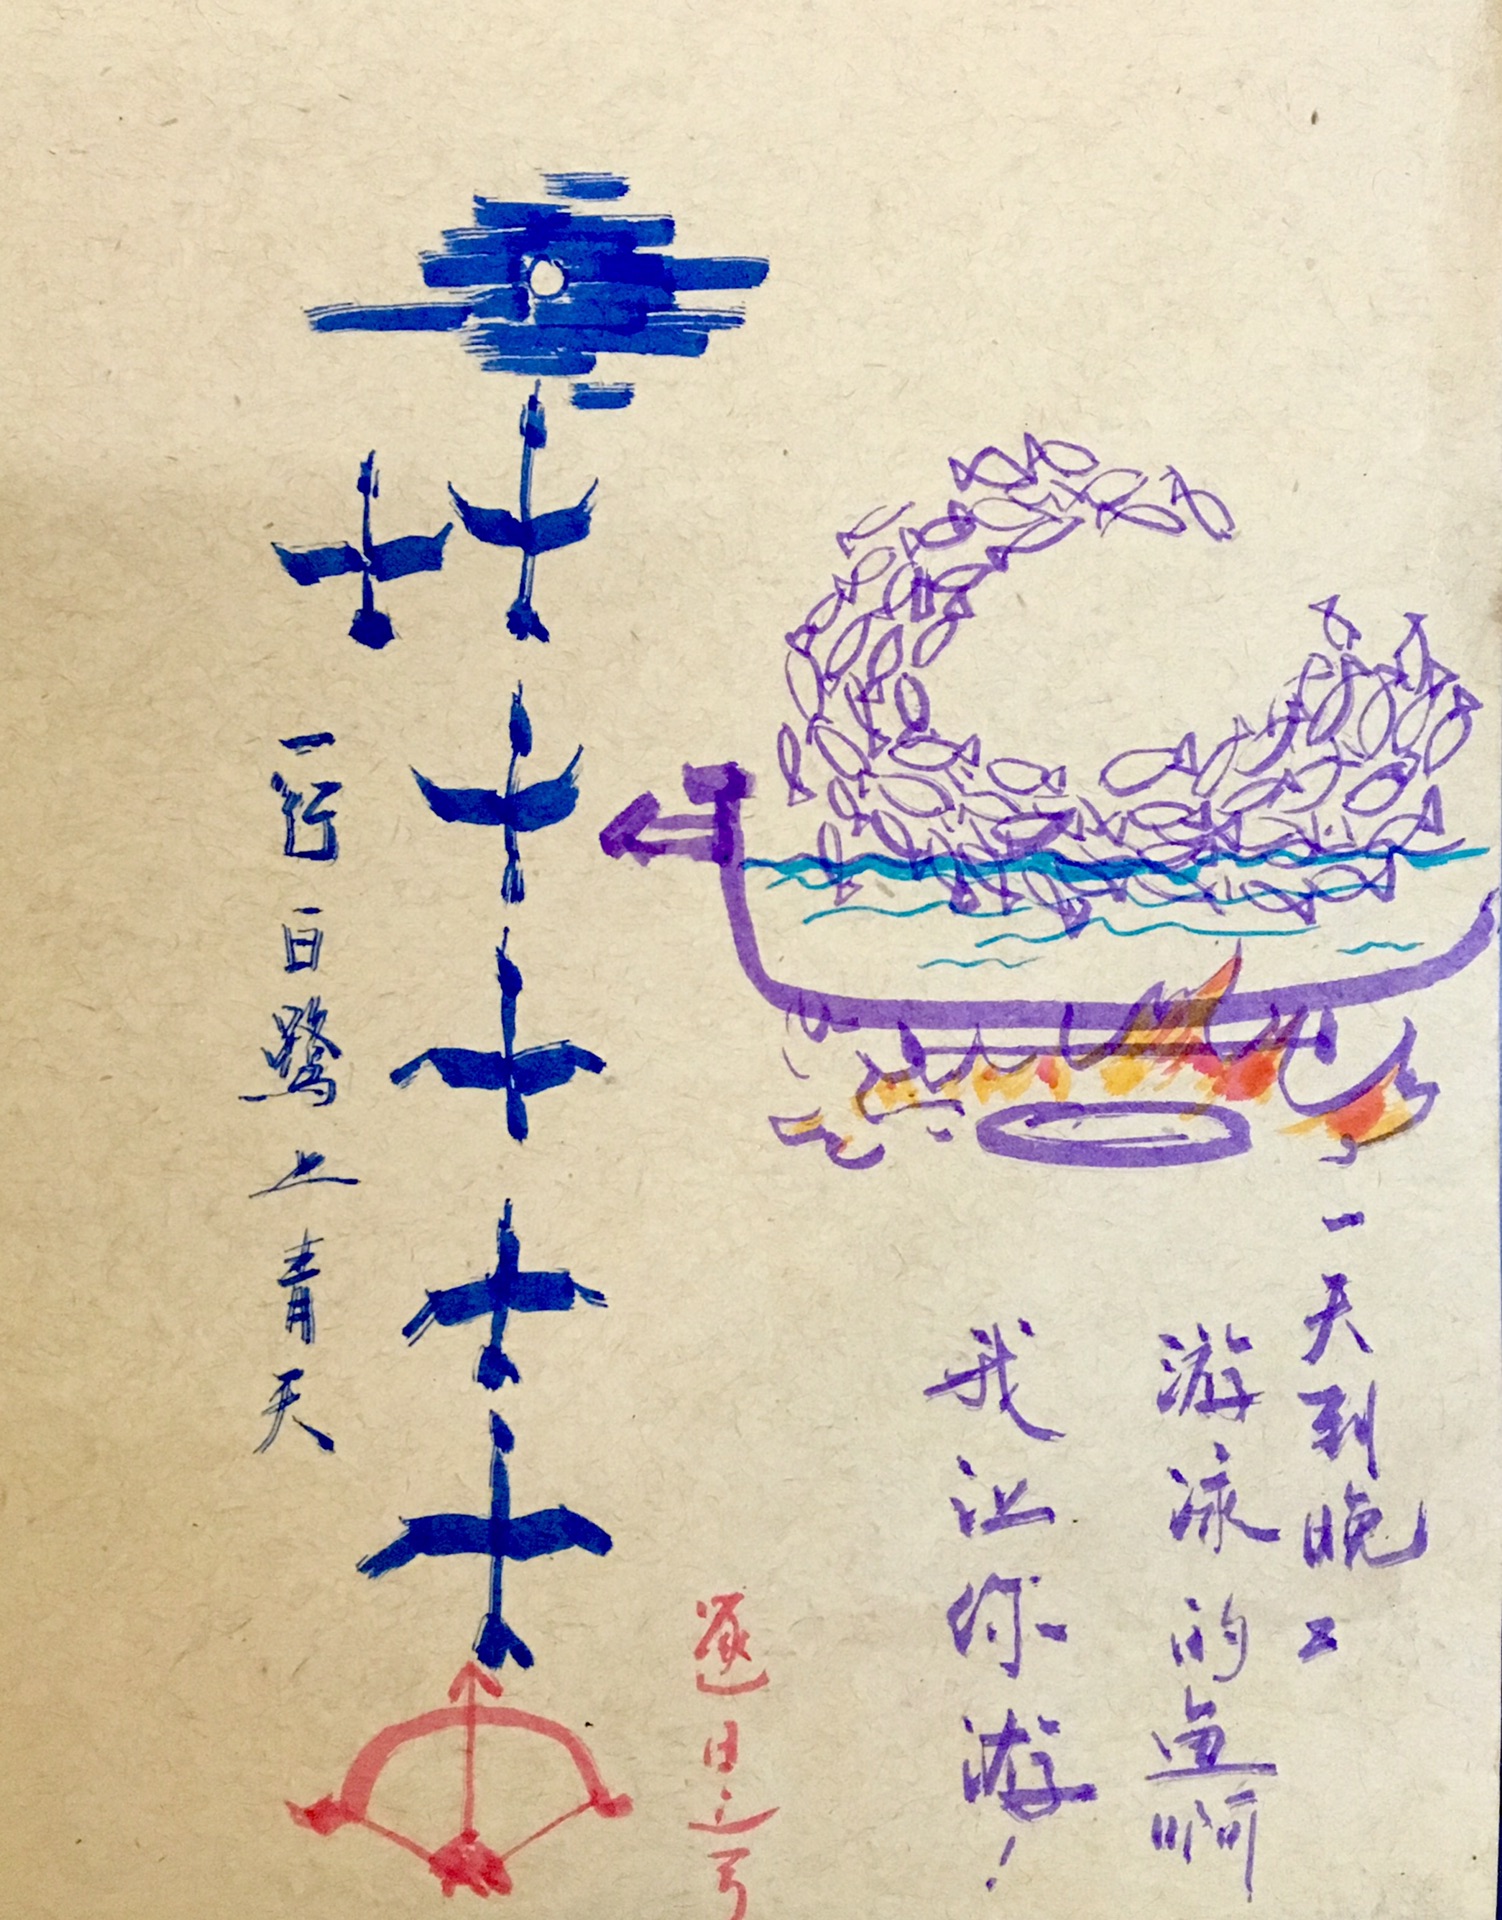 一天到晚
游泳的鱼啊
我让你游！
逐日之弓
一行白鹭上青天